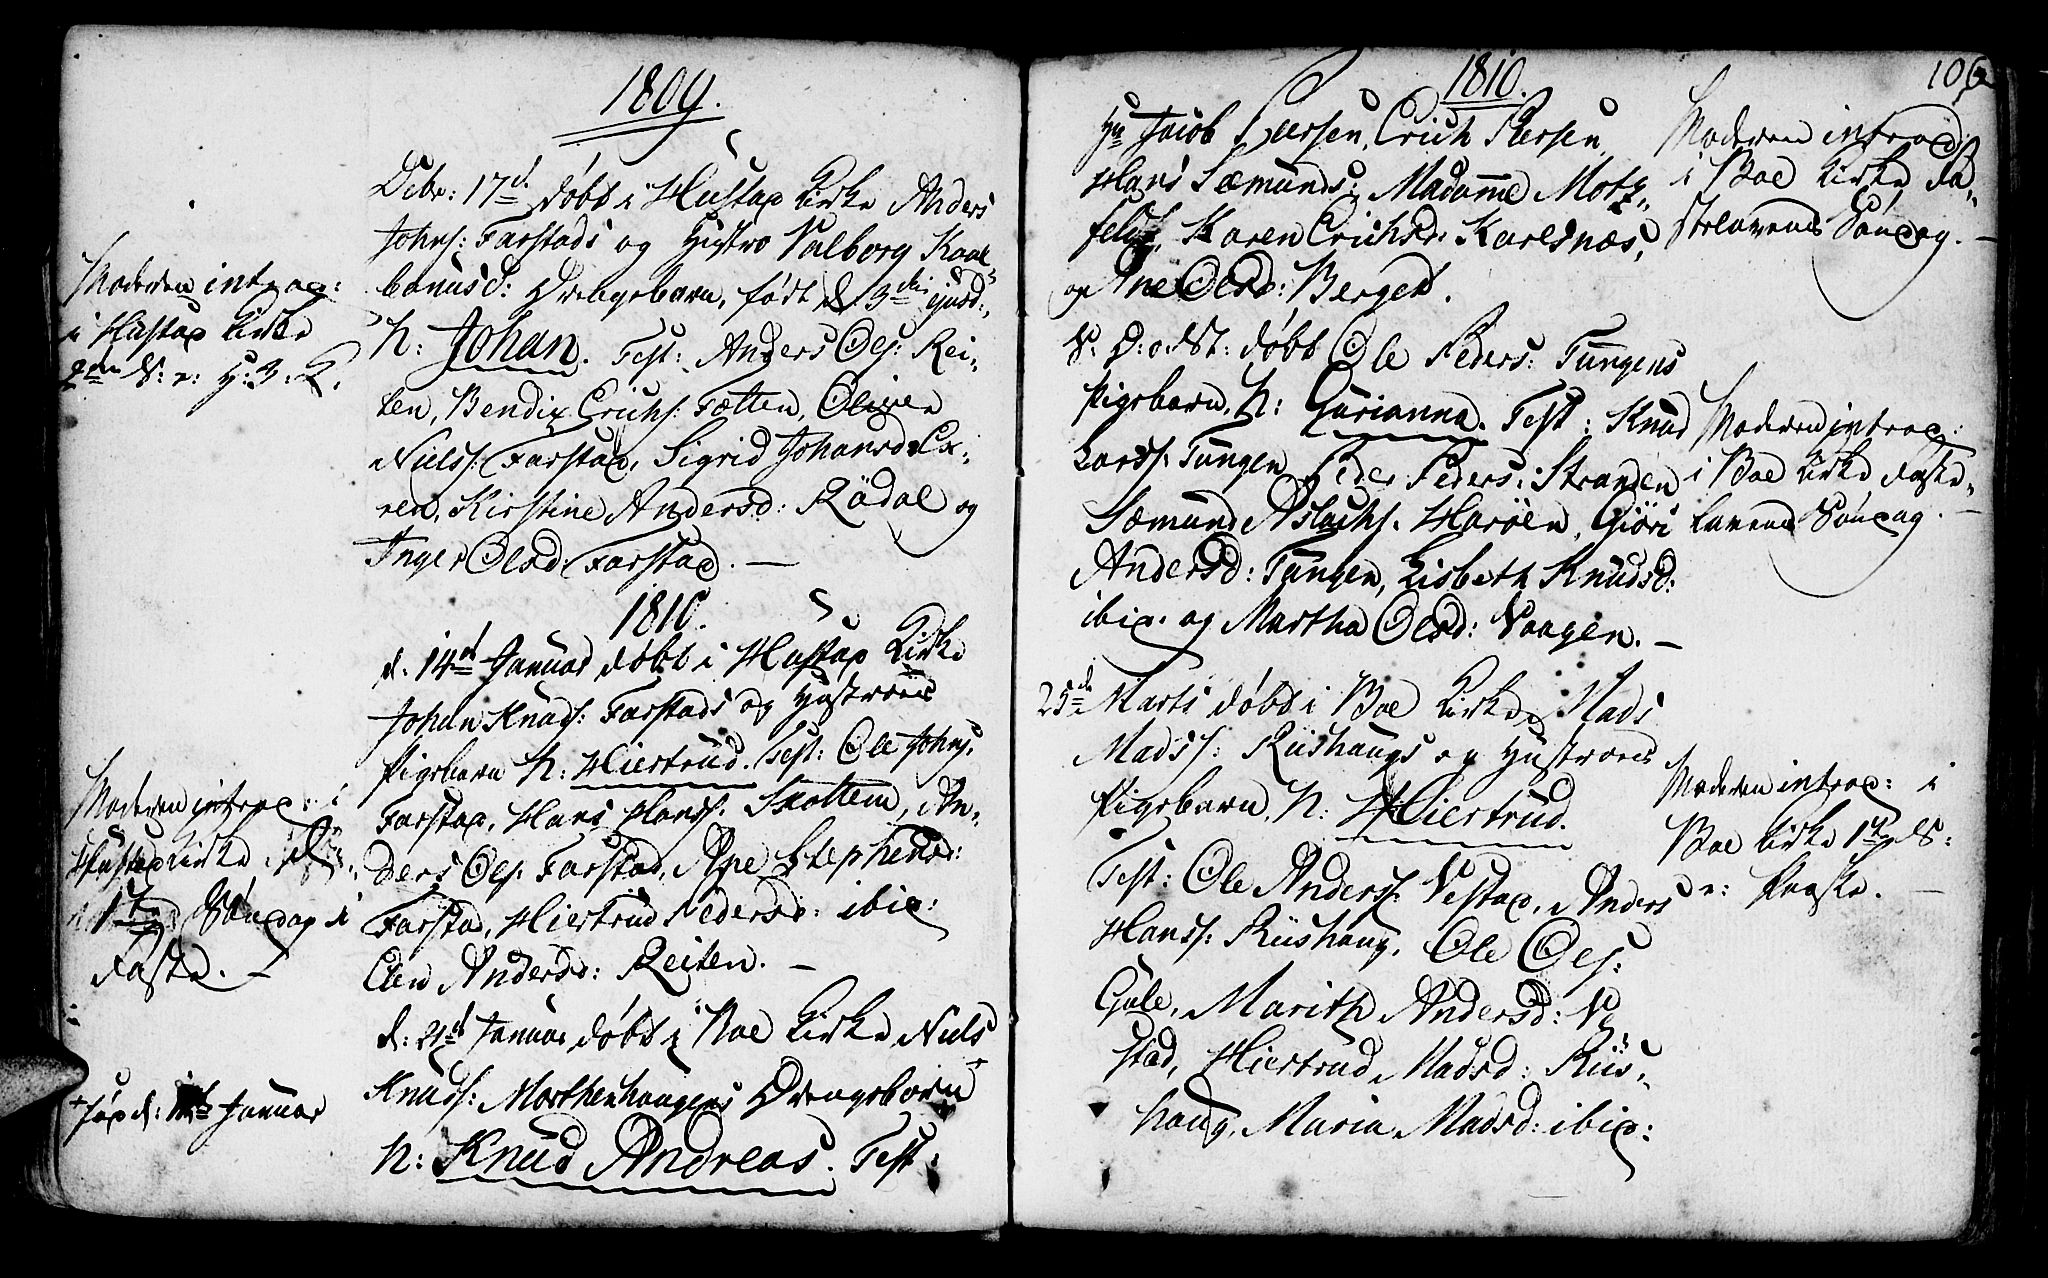 1809.
Debr: 17d. døbt i Hustad Kirke Anders
Johns: Farstads og Hustro Valborg Kaal-
banusd: Drengebarn, født d. 3die ejusd:,
N: Johan. Test: Anders Oles: Rei-
ten, Bendix Erichs: Tætten, Oliver
Nielss: Farstad, Sigrid Johansd: Ex-
ren, Kirstine Andersd: Rödal og
Inger Olsd: Farstad. —
Moderen introd:
i Hustad Kirke
2den S: e: H: 3: K.
1810.
d. 14d Januar døbt i Hustad Kirke
Johan Knuds: Farstads og Hustroes
Pigebarn N: Hiertrud. Test: Ole Johns.
Farstad, Hans Hanss. Skottem, An-
ders Oles. Farstad, Ane Stephensd:
Farstad, Hiertrud Pedersd: ibid:
Elen Andersd: Reiten. —
Moderen introd: i
Hustad Kirke
1te Søndag i
Faste. —
d: 21d Januar døbt i Boe Kirke Niels
Knuds: Morthenhaugens Drengebarn +
N: Knud Andreas. Test:
+ fød d: Januar
106
1810.
Hr Jacob Leersen, Erich Persen,
Hans Sæmunds: Madamme Motz-
feldt, Karen Erichsd: Karlsnæs,
og Ane Olsd: Berget.
Moderen introd:
i Boe Kirke Fa-
stelavens Søndag. —
S: D: o dSt: døbt Ole Peders: Tungens
Pigebarn, N: Gurianna. Test: Knud
Larss. Tungen, Peder Peders: Stranden
Sæmund Aslachs. Harøen, Giöri
Andersd: Tungen, Lisbeth Knudsd:
ibid. og Martha Olsd: Vaagen. —
Moderen introd:
i Boe Kirke Faste-
lavens Søndag. —
25de Marts døbt i Boe Kirke, Mads
Madss: Riishaugs og Hustroes
Pigebarn, N: Hiertrud.
Test: Ole Anderss: Vestad, Anders
Hanss: Riishaug, Ole Oles:
Gule, Marith Andersd: Ve-
stad, Hiertrud Madsd: Riis-
haug, Maria Madsd: ibid:
Moderen introd: i
Boe Kirke 1te S:
e: Paaske. —